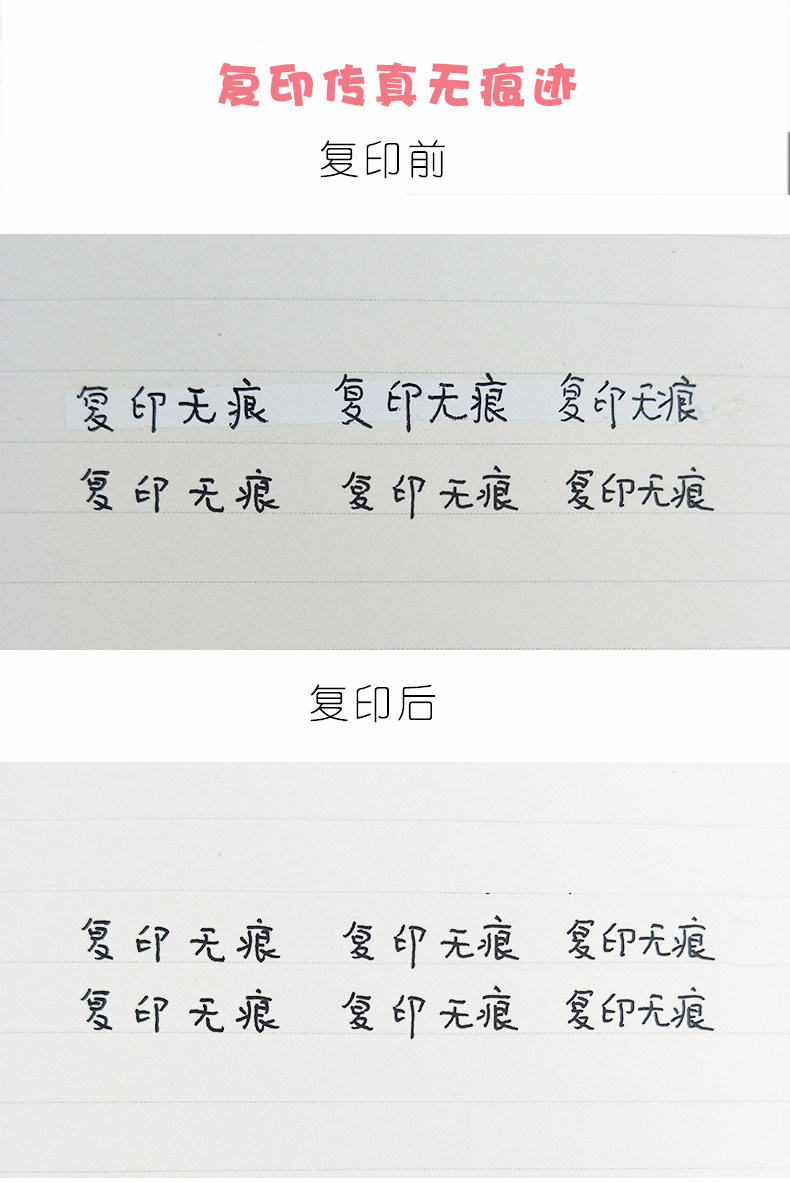 复印传真无痕迹
复印前
复印无痕 复印无痕 复印无痕
复印无痕 复印无痕 复印无痕
复印后
复印无痕 复印无痕 复印无痕
复印无痕 复印无痕 复印无痕